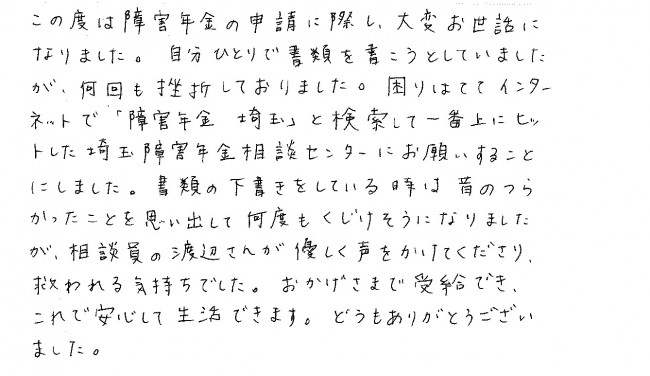 この度は障害年金の申請に際し、大変お世話に
なりました。自分ひとりで書類を書こうとしていました
が、何回も挫折しておりました。困りはててインター
ネットで「障害年金　埼玉」と検索して一番上にヒッ
トした埼玉障害年金相談センターにお願いすること
にしました。書類の下書きをしている時は昔のつら
かったことを思い出して何度もくじけそうになりました
が、相談員の渡辺さんが優しく声をかけてくださり、
救われる気持ちでした。おかげさまで受給でき、
これで安心して生活できます。どうもありがとうござい
ました。